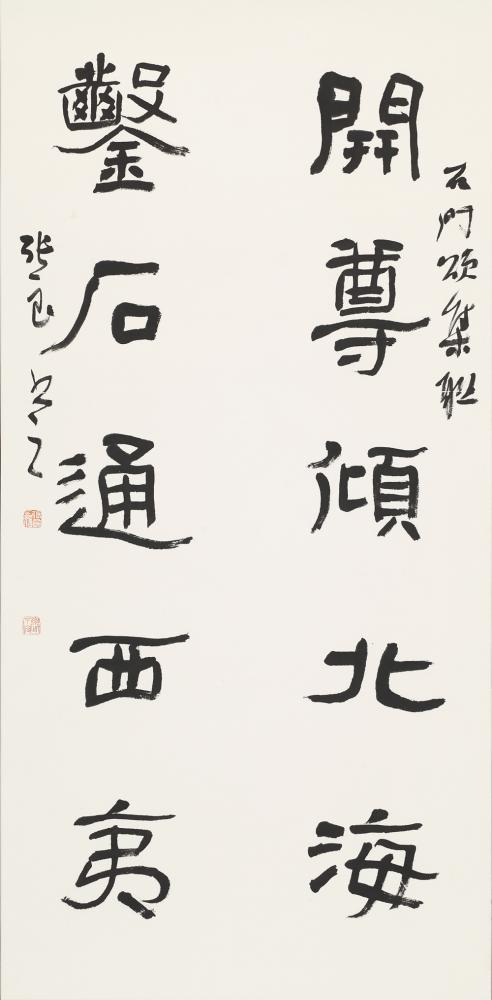 石門頌集聯
開尊傾北海
鑿石通西夷
張良書